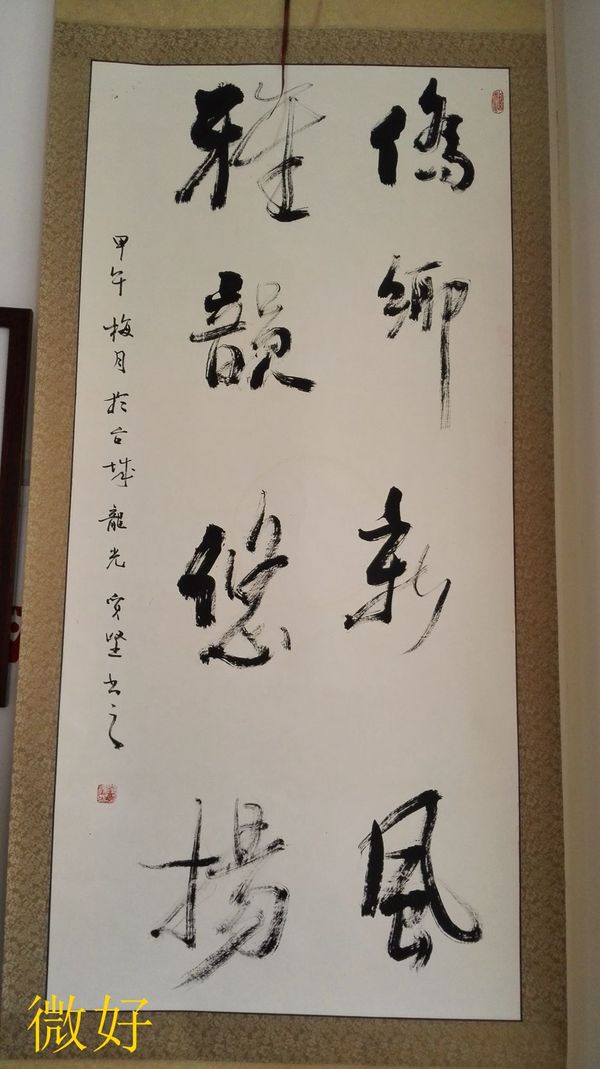 僑鄉新風
雅韻悠揚
甲午梅月於台城龍光
堅书之
微好